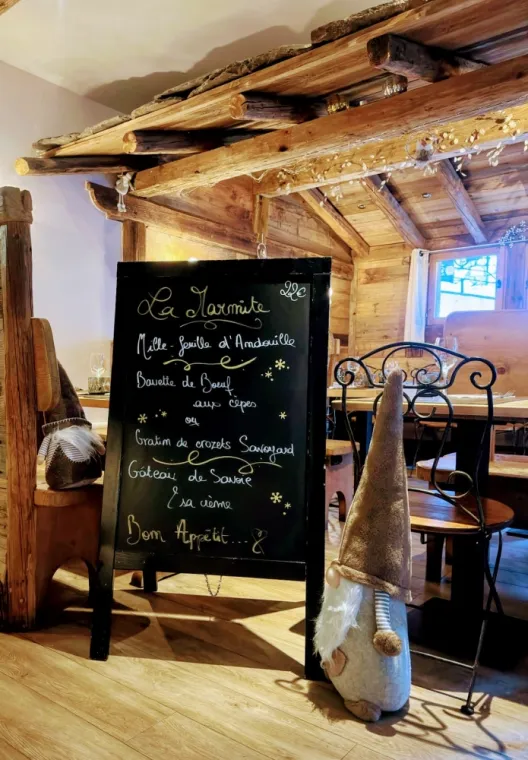 La Marmite 22€
Mille-feuille d'Andouille
Bavette de Boeuf
aux cèpes
ou
Gratin de crozets Savoyard
Gâteau de Savoie
& sa crème
Bon Appétit...